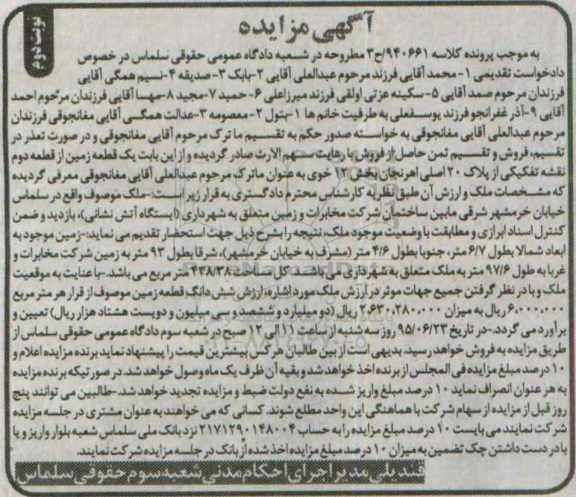 آگهی مزایده
نوبت دوم
به موجب پرونده کلاسه ۹۴۰۶۶۱/ح۳ مطروحه در شعبه دادگاه عمومی حقوقی سلماس در خصوص
دادخواست تقدیمی ۱-محمد آقایی فرزند مرحوم عبدالعلی آقایی ۲-بابک ۳-صدیقه ۴-نسیم همگی آقایی
فرزندان مرحوم صمد آقایی ۵-سکینه عزتی اولقی فرزند میرزاعلی ۶-حمید ۷-مجید ۸-مهسا آقایی فرزندان مرحوم احمد
آقایی ۹-آذر غفرانجو فرزند یوسفعلی به طرفیت خانم ها ۱-بتول ۲-معصومه ۳-عدالت همگی آقایی مغانجوقی فرزندان
مرحوم عبدالعلی آقایی مغانجوقی به خواسته صدور حکم به تقسیم ما ترک مرحوم آقایی مغانجوقی و در صورت تعذر در
تقسیم، فروش و تقسیم ثمن حاصل از فروش با رعایت سهم الارث صادر گردیده و از این بابت یک قطعه زمین از قطعه دوم
نقشه تفکیکی از پلاک ۲۰ اصلی اهرنجان بخش ۱۲ خوی به عنوان ماترک مرحوم آقایی مغانجوقی معرفی گردیده
که مشخصات ملک و ارزش آن طبق نظریه کارشناس محترم دادگستری به قرار زیر است:-ملک موصوف واقع در سلماس
خیابان خرمشهر شرقی مابین ساختمان شرکت مخابرات و زمین متعلق به شهرداری (ایستگاه آتش نشانی)، بازدید و ضمن
کنترل اسناد ابرازی و مطابقت با وضعیت موجود ملک، نتیجه را بشرح ذیل جهت استحضار تقدیم می نماید:-زمین موجود به
ابعاد شمالا بطول ۶/۷ متر، جنوبا بطول ۴/۶ متر (مشرف به خیابان خرمشهر)، شرقا بطول ۹۳ متر به زمین شرکت مخابرات و
غربا به طول ۹۷/۶ متر به ملک متعلق به شهرداری می باشند. کل مساحت ۴۳۸/۳۸ متر مربع می باشد.-با عنایت به موقعیت
ملک و با در نظر گرفتن جمیع جهات موثر در ارزش ملک مورد اشاره، ارزش شش دانگ قطعه زمین موصوف از قرار هر متر مربع
۶,۰۰۰,۰۰۰ ریال به میزان ۲,۶۳۰,۲۸۰,۰۰۰ ریال (دو میلیارد و ششصد و سی میلیون و دویست هشتاد هزار ریال) تعیین و
برآورد می گردد.-در تاریخ ۹۵/۰۶/۲۳ روز سه شنبه از ساعت ۱۱ الی ۱۲ صبح در شعبه سوم دادگاه عمومی حقوقی سلماس از
طریق مزایده به فروش خواهد رسید. بدیهی است از بین طالبان هر کس بیشترین قیمت را پیشنهاد نماید برنده مزایده اعلام و
۱۰ درصد مبلغ مزایده فی المجلس از برنده اخذ خواهد شد و بقیه آن ظرف یک ماه وصول خواهد شد. در صورتیکه برنده مزایده
به هر عنوان انصراف نماید ۱۰ درصد مبلغ واریز شده به نفع دولت ضبط و مزایده تجدید خواهد شد.-طالبین می توانند پنج
روز قبل از مزایده از سهام شرکت با هماهنگی این واحد مطلع شوند. کسانی که می خواهند به عنوان مشتری در جلسه مزایده
شرکت نمایند می بایست ۱۰ درصد مبلغ مزایده را به حساب ۲۱۷۱۲۹۰۱۴۸۰۰۴ نزد بانک ملی سلماس شعبه بلوار واریز و یا
با در دست داشتن چک تضمین به میزان ۱۰ درصد مبلغ مزایده اخذ شده از بانک در جلسه مزایده شرکت نمایند.
قندیلی مدیر اجرای احکام مدنی شعبه سوم حقوقی سلماس